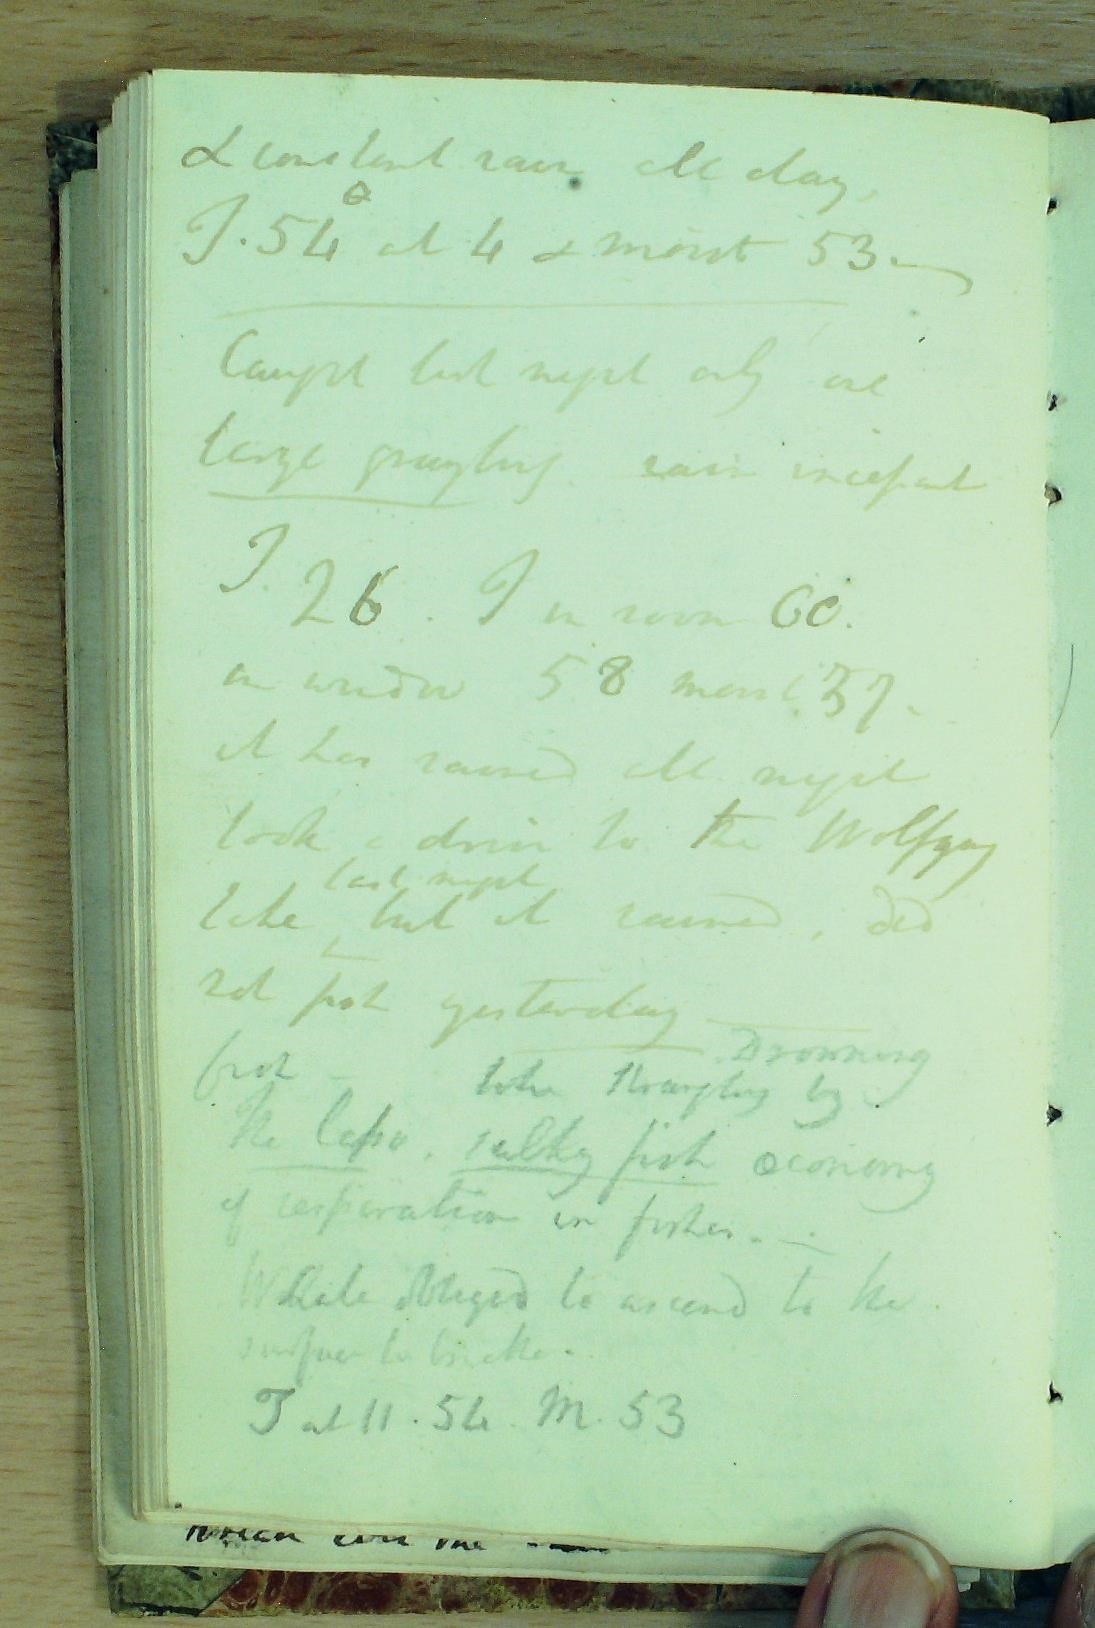 & constant rain all day,
T. 54° at 4 & moist 53.
Caught last night only one
large grayling. rain incessant
T. 26. T in room 60.
in window 58 moist 57.
it has rained all night
took a drive to the Wolfgang
last night
lake but it rained, did
not fish yesterday
Drowning
fish - by
The . sulky fish oeconomy
of respiration in fishes.
Whale obliged to ascend to the
surface to breathe.
T at 11. 54. M. 53
which are the